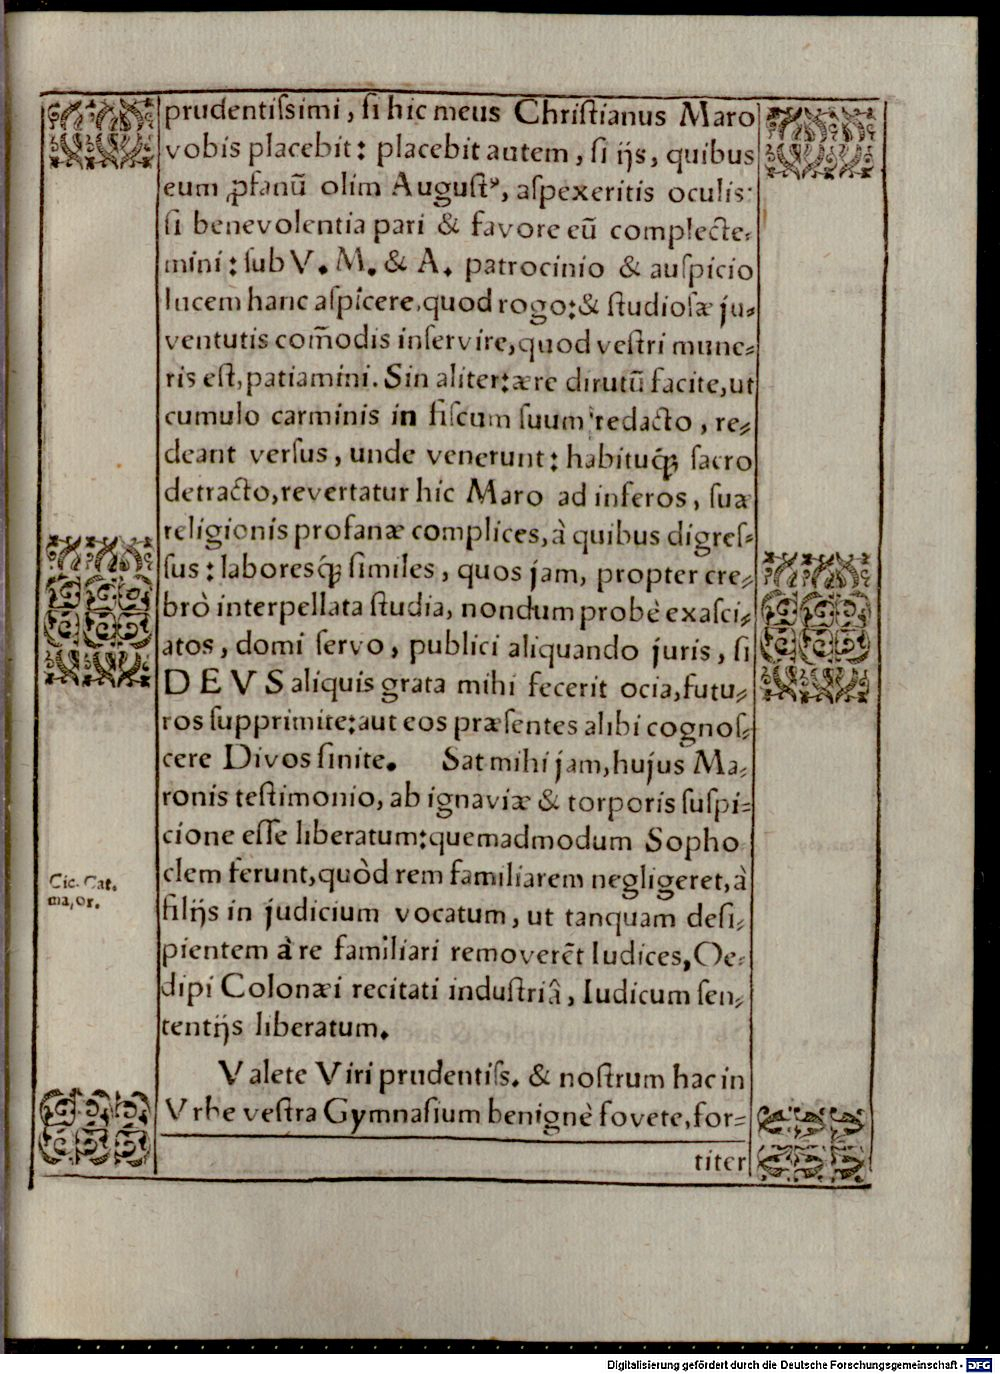 prudentiſsimi, ſi hic meus Chriſtianus Maro
vobis placebit: placebit autem, ſi ijs, quibus
eum ꝓfanū olim Auguſtꝰ, aſpexeritis oculis:
ſi benevolentia pari & favore eū complecte-
mini: ſub V. M. & A. patrocinio & auſpicio
lucem hanc aſpicere, quod rogo: & ſtudioſæ ju-
ventutis com̄odis inſervire, quod veſtri mune-
ris eſt, patiamini. Sin aliter: ære dirutū facite, ut
cumulo carminis in fiſcum ſuum redacto, re-
deant verſus, unde venerunt: habituq́; ſacro
detracto, revertatur hic Maro ad inferos, ſuæ
religionis profanæ complices, à quibus digreſ-
ſus: laboresq́; ſimiles, quos jam, propter cre-
brò interpellata ſtudia, nondum probè exaſci-
atos, domi ſervo, publici aliquando juris, ſi
DEVS aliquis grata mihi fecerit ocia, futu-
ros ſupprimite: aut eos præſentes alibi cognoſ-
cere Divos ſinite. Sat mihi jam, hujus Ma-
ronis teſtimonio, ab ignaviæ & torporis ſuſpi-
cione eſſe liberatum: quemadmodum Sopho
clem ferunt, quòd rem familiarem negligeret, à
filijs in judicium vocatum, ut tanquam deſi-
pientem à re familiari removerēt Iudices, Oe-
dipi Colonæi recitati induſtriâ, Iudicum ſen-
tentijs liberatum.
Cic. Cat.
major.
Valete Viri prudentiſs. & noſtrum hac in
Vrbe veſtra Gymnaſium benignè fovete, for-
titer
Digitalisierung gefördert durch die Deutsche Forschungsgemeinschaft - DFG